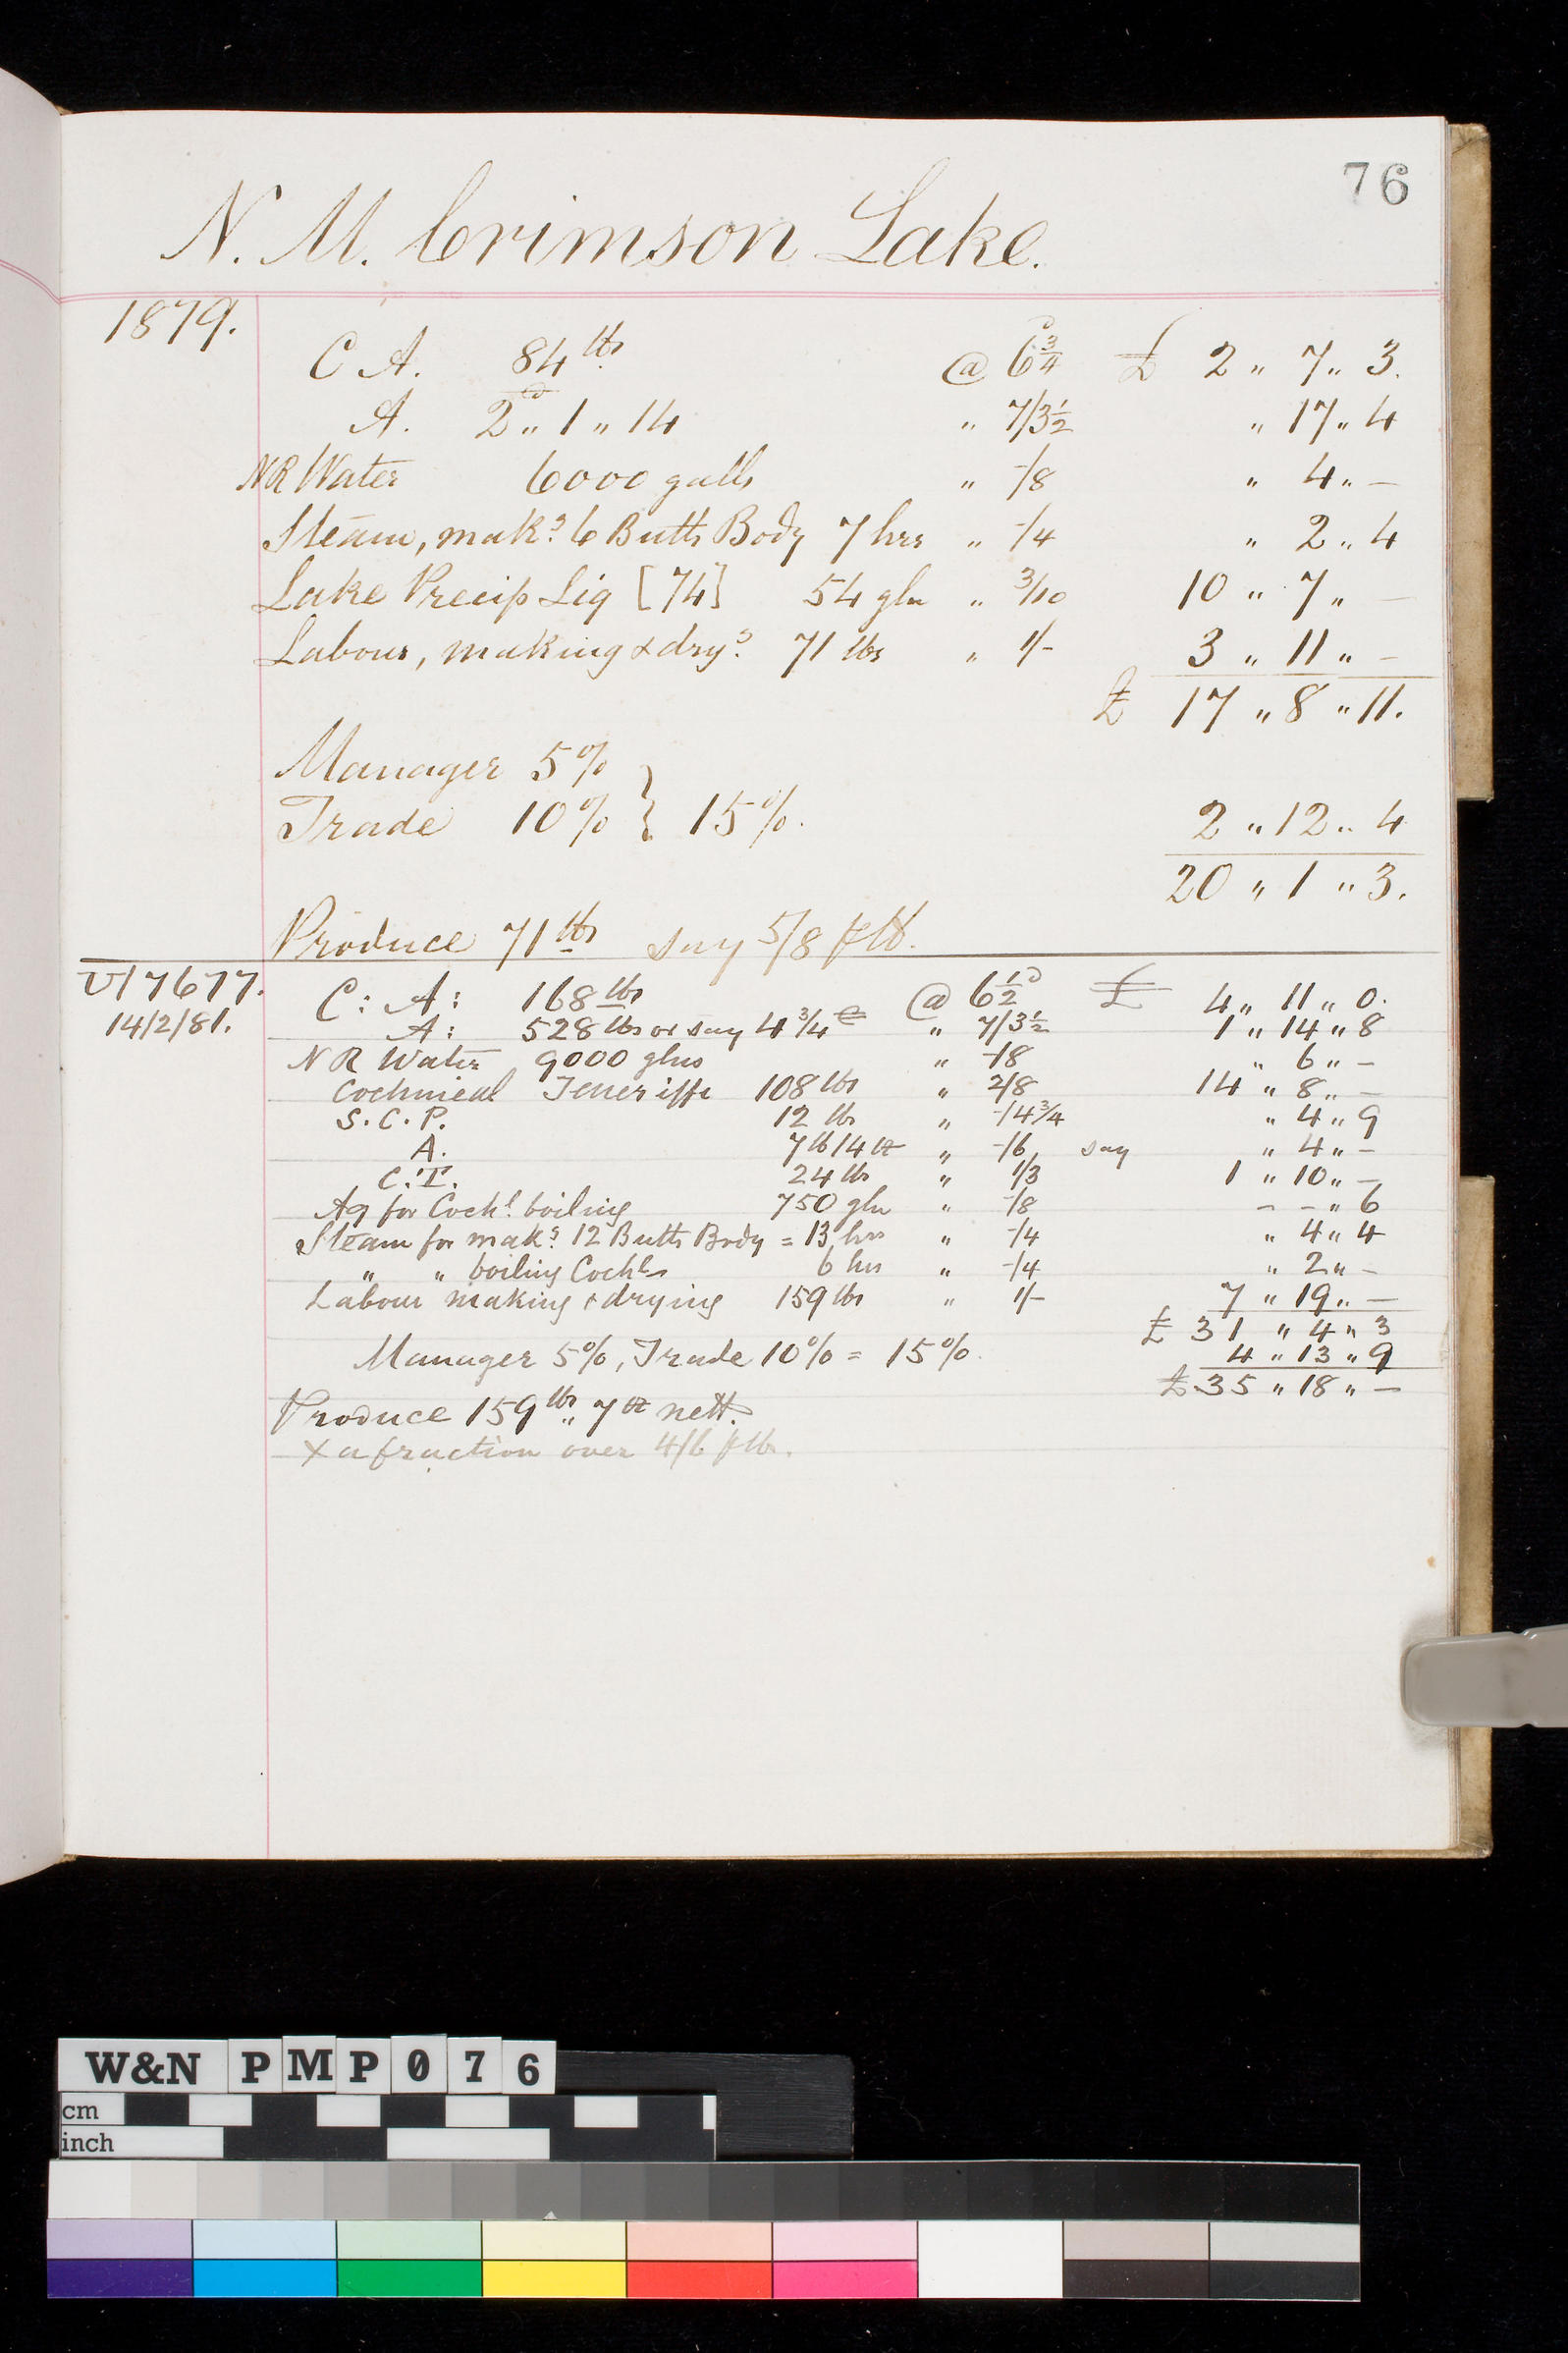 76
N. M. Crimson Lake.
1879.
C A. 84 lbs @ 6 3/4 d £ 2 " 7 " 3.
A. 2 c " 1 " 14 " 7/3 1/2 " 17 " 4
NR Water 6000 galls " -/8 " 4 " —
Steam, makg. 6 Butts Body 7 hrs " -/4 " 2 " 4
Lake Precip Liq [74] 54 gln " 3/10 10 " 7 " —
Labour, making & dryg. 71 lbs " 1/- 3 " 11 " —
£ 17 " 8 " 11.
Manager 5%
Trade 10% } 15%. 2 " 12 " 4
20 " 1 " 3.
Produce 71 lbs say 5/8 p lb.
V17677. C: A: 168 lbs @ 6 1/2 d £ 4 " 11 " 0.
14/2/81. A: 528 lbs or say 4 3/4 c " 7/3 1/2 1 " 14 " 8
N R Water 9000 glns " -/8 " 6 " —
Cochineal Teneriffe 108 lbs " 2/8 14 " 8 " —
S.C.P. 12 lbs " -/4 3/4 " 4 " 9
A. 7 lb 14 oz " -/6 say " 4 " —
C.T. 24 lbs " 1/3 1 " 10 " —
Aq for Cochl. boiling 750 gln " -/8 – – " 6
Steam for makg. 12 Butts Body = 13 hrs " -/4 " 4 " 4
" " boiling Cochl 6 hrs " -/4 " 2 " —
Labour making & drying 159 lbs " 1/- 7 " 19 " —
£ 31 " 4 " 3
Manager 5%, Trade 10% = 15%. 4 " 13 " 9
£ 35 " 18 " —
Produce 159 lbs " 7 oz nett.
x a fraction over 4/6 p lb.
W&N PMP076
cm
inch